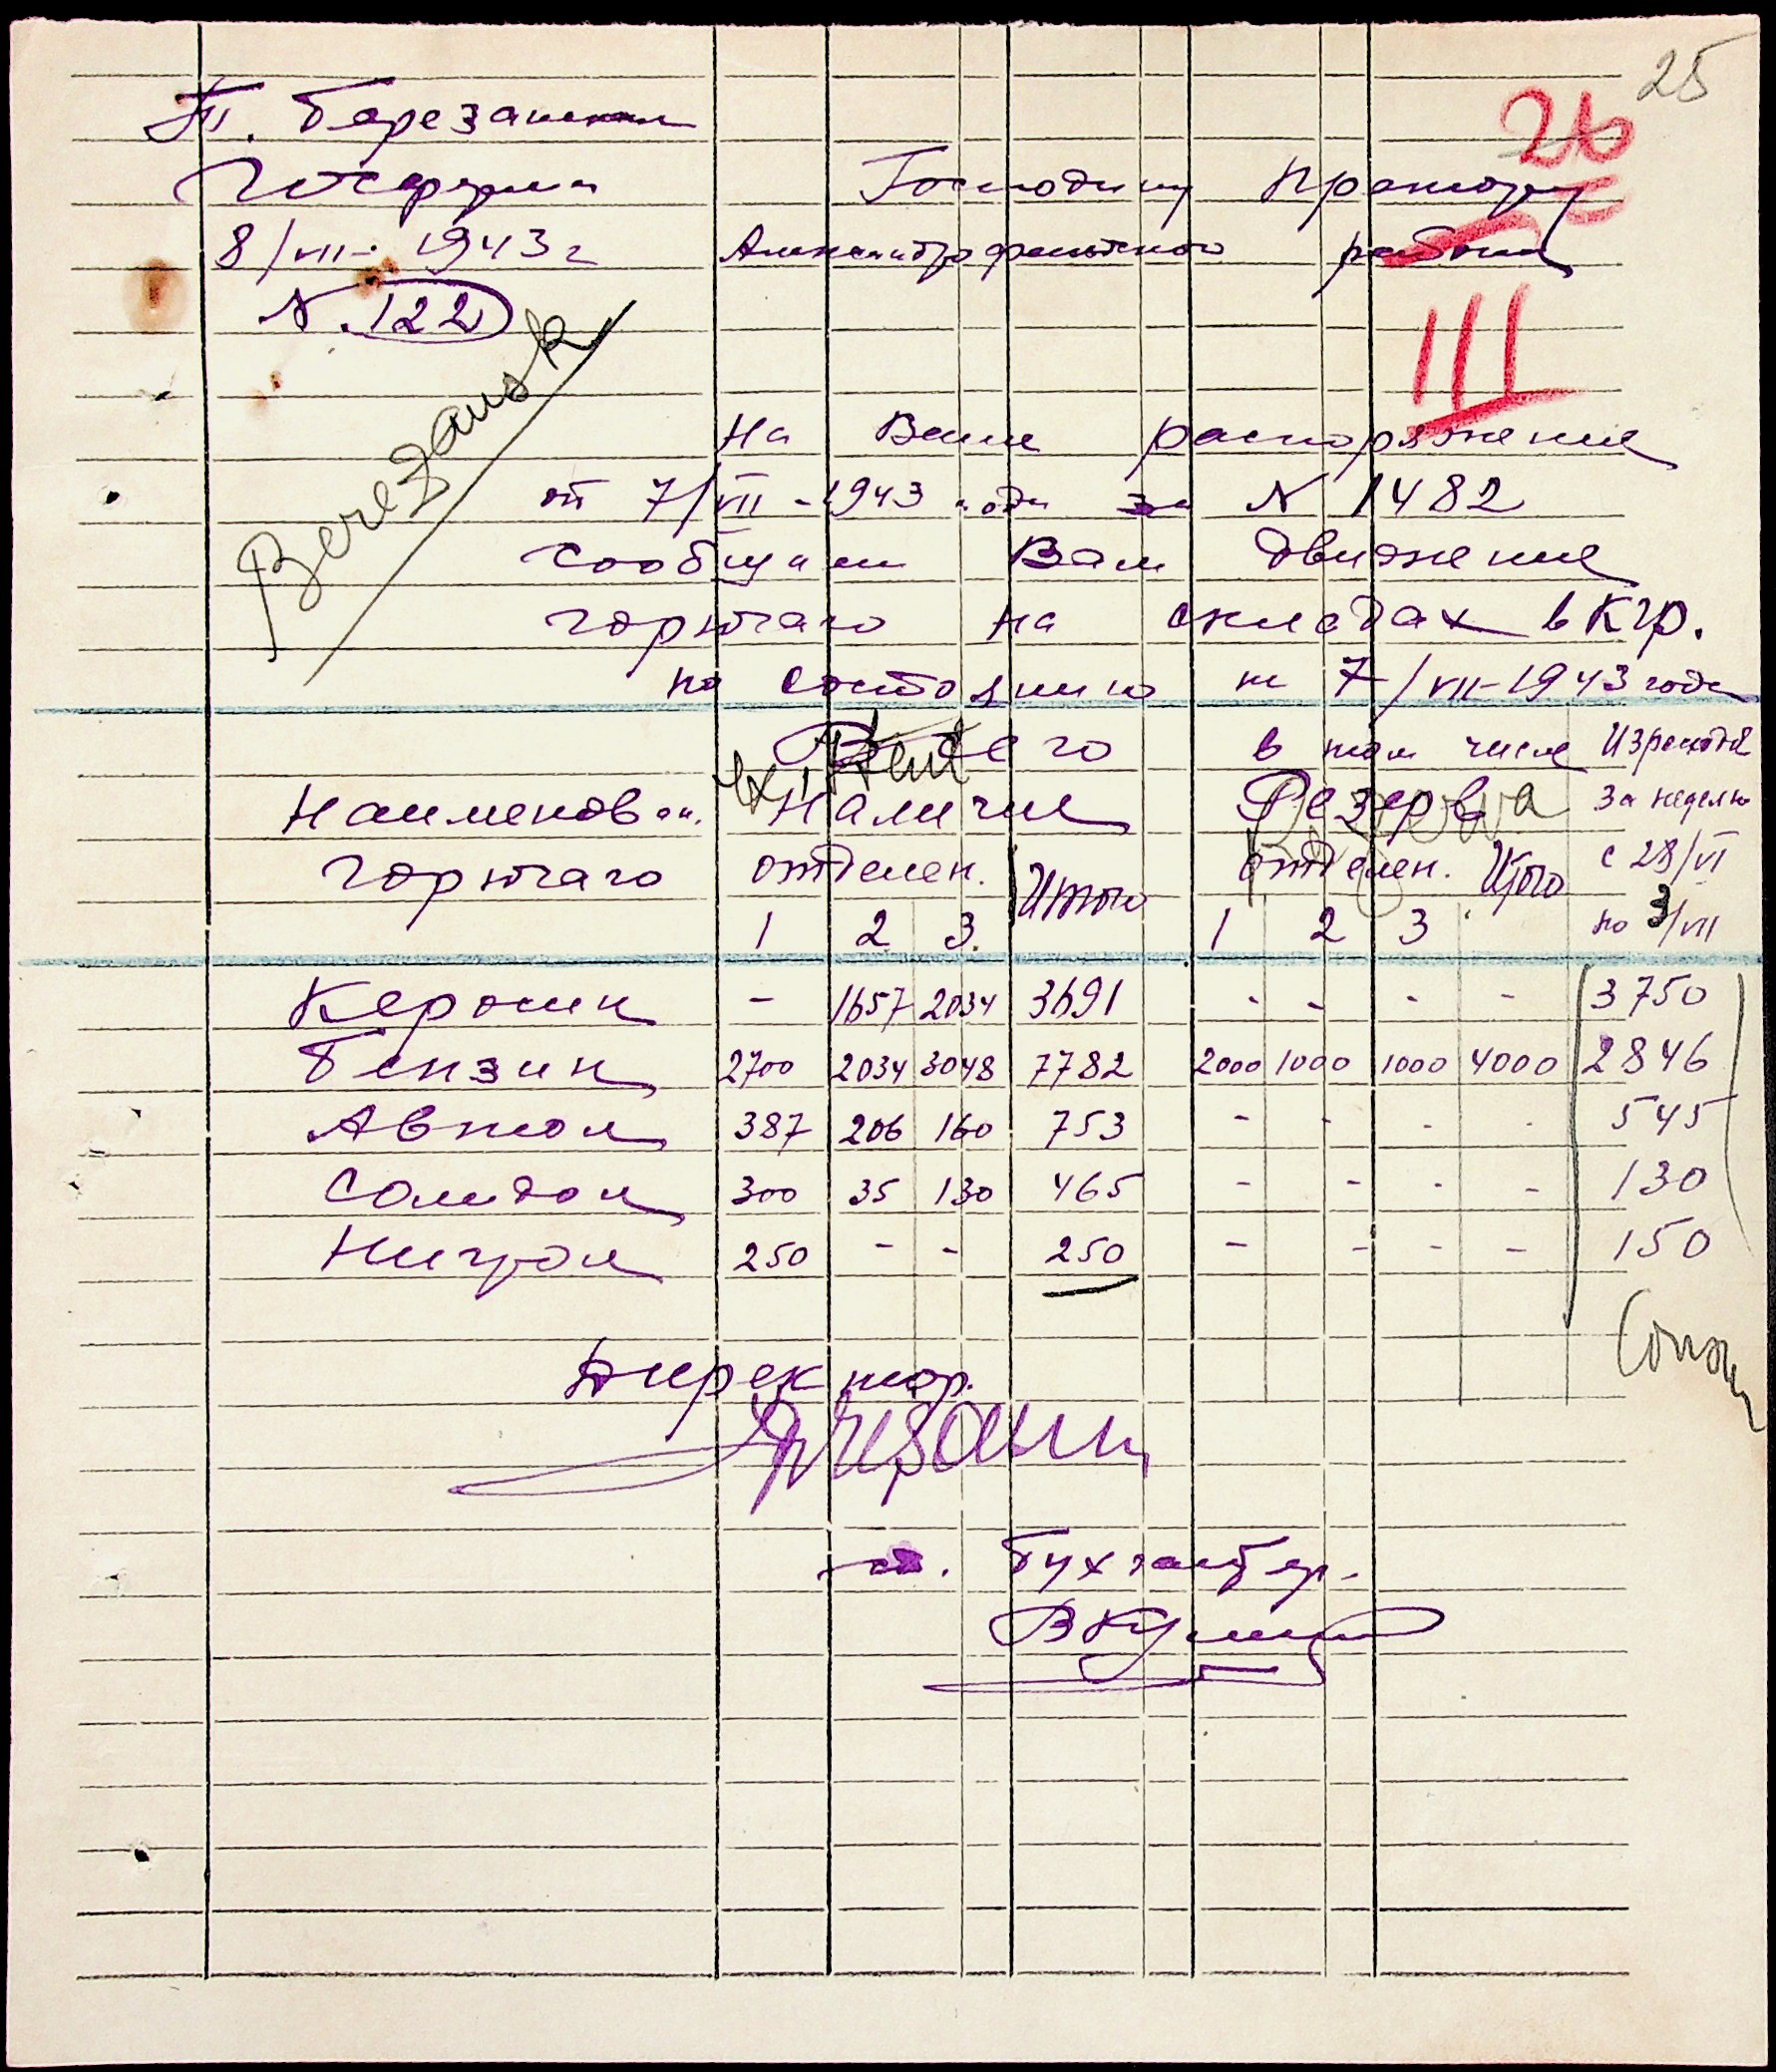 25
26
Березанская
Госферма
Господину Претору
8/VII - 1943 г
Александрофельдского района
N. 122
III
Berezansk
На Ваше распоряжение
от 7/VII - 1943 года за N 1482
сообщаем Вам движение
горючаго на складах в Кгр.
по состоянию на 7/VII - 1943 года
Всего в том числе Израсход
Existent
Наименован. Наличие Резерва За неделю
Rezerva
горючаго отделен. Итого отделен. Итого с 28/VI
1 2 3. 1 2 3 по 3/VII
Керосин - 1657 2034 3691 - - - - 3750
Бензин 2700 2034 3048 7782 2000 1000 1000 4000 2846
Автол 387 206 160 753 - - - - 545
Солидол 300 35 130 465 - - - - 130
Нигрол 250 - - 250 - - - - 150
Директор.
ст. Бухгалтер.